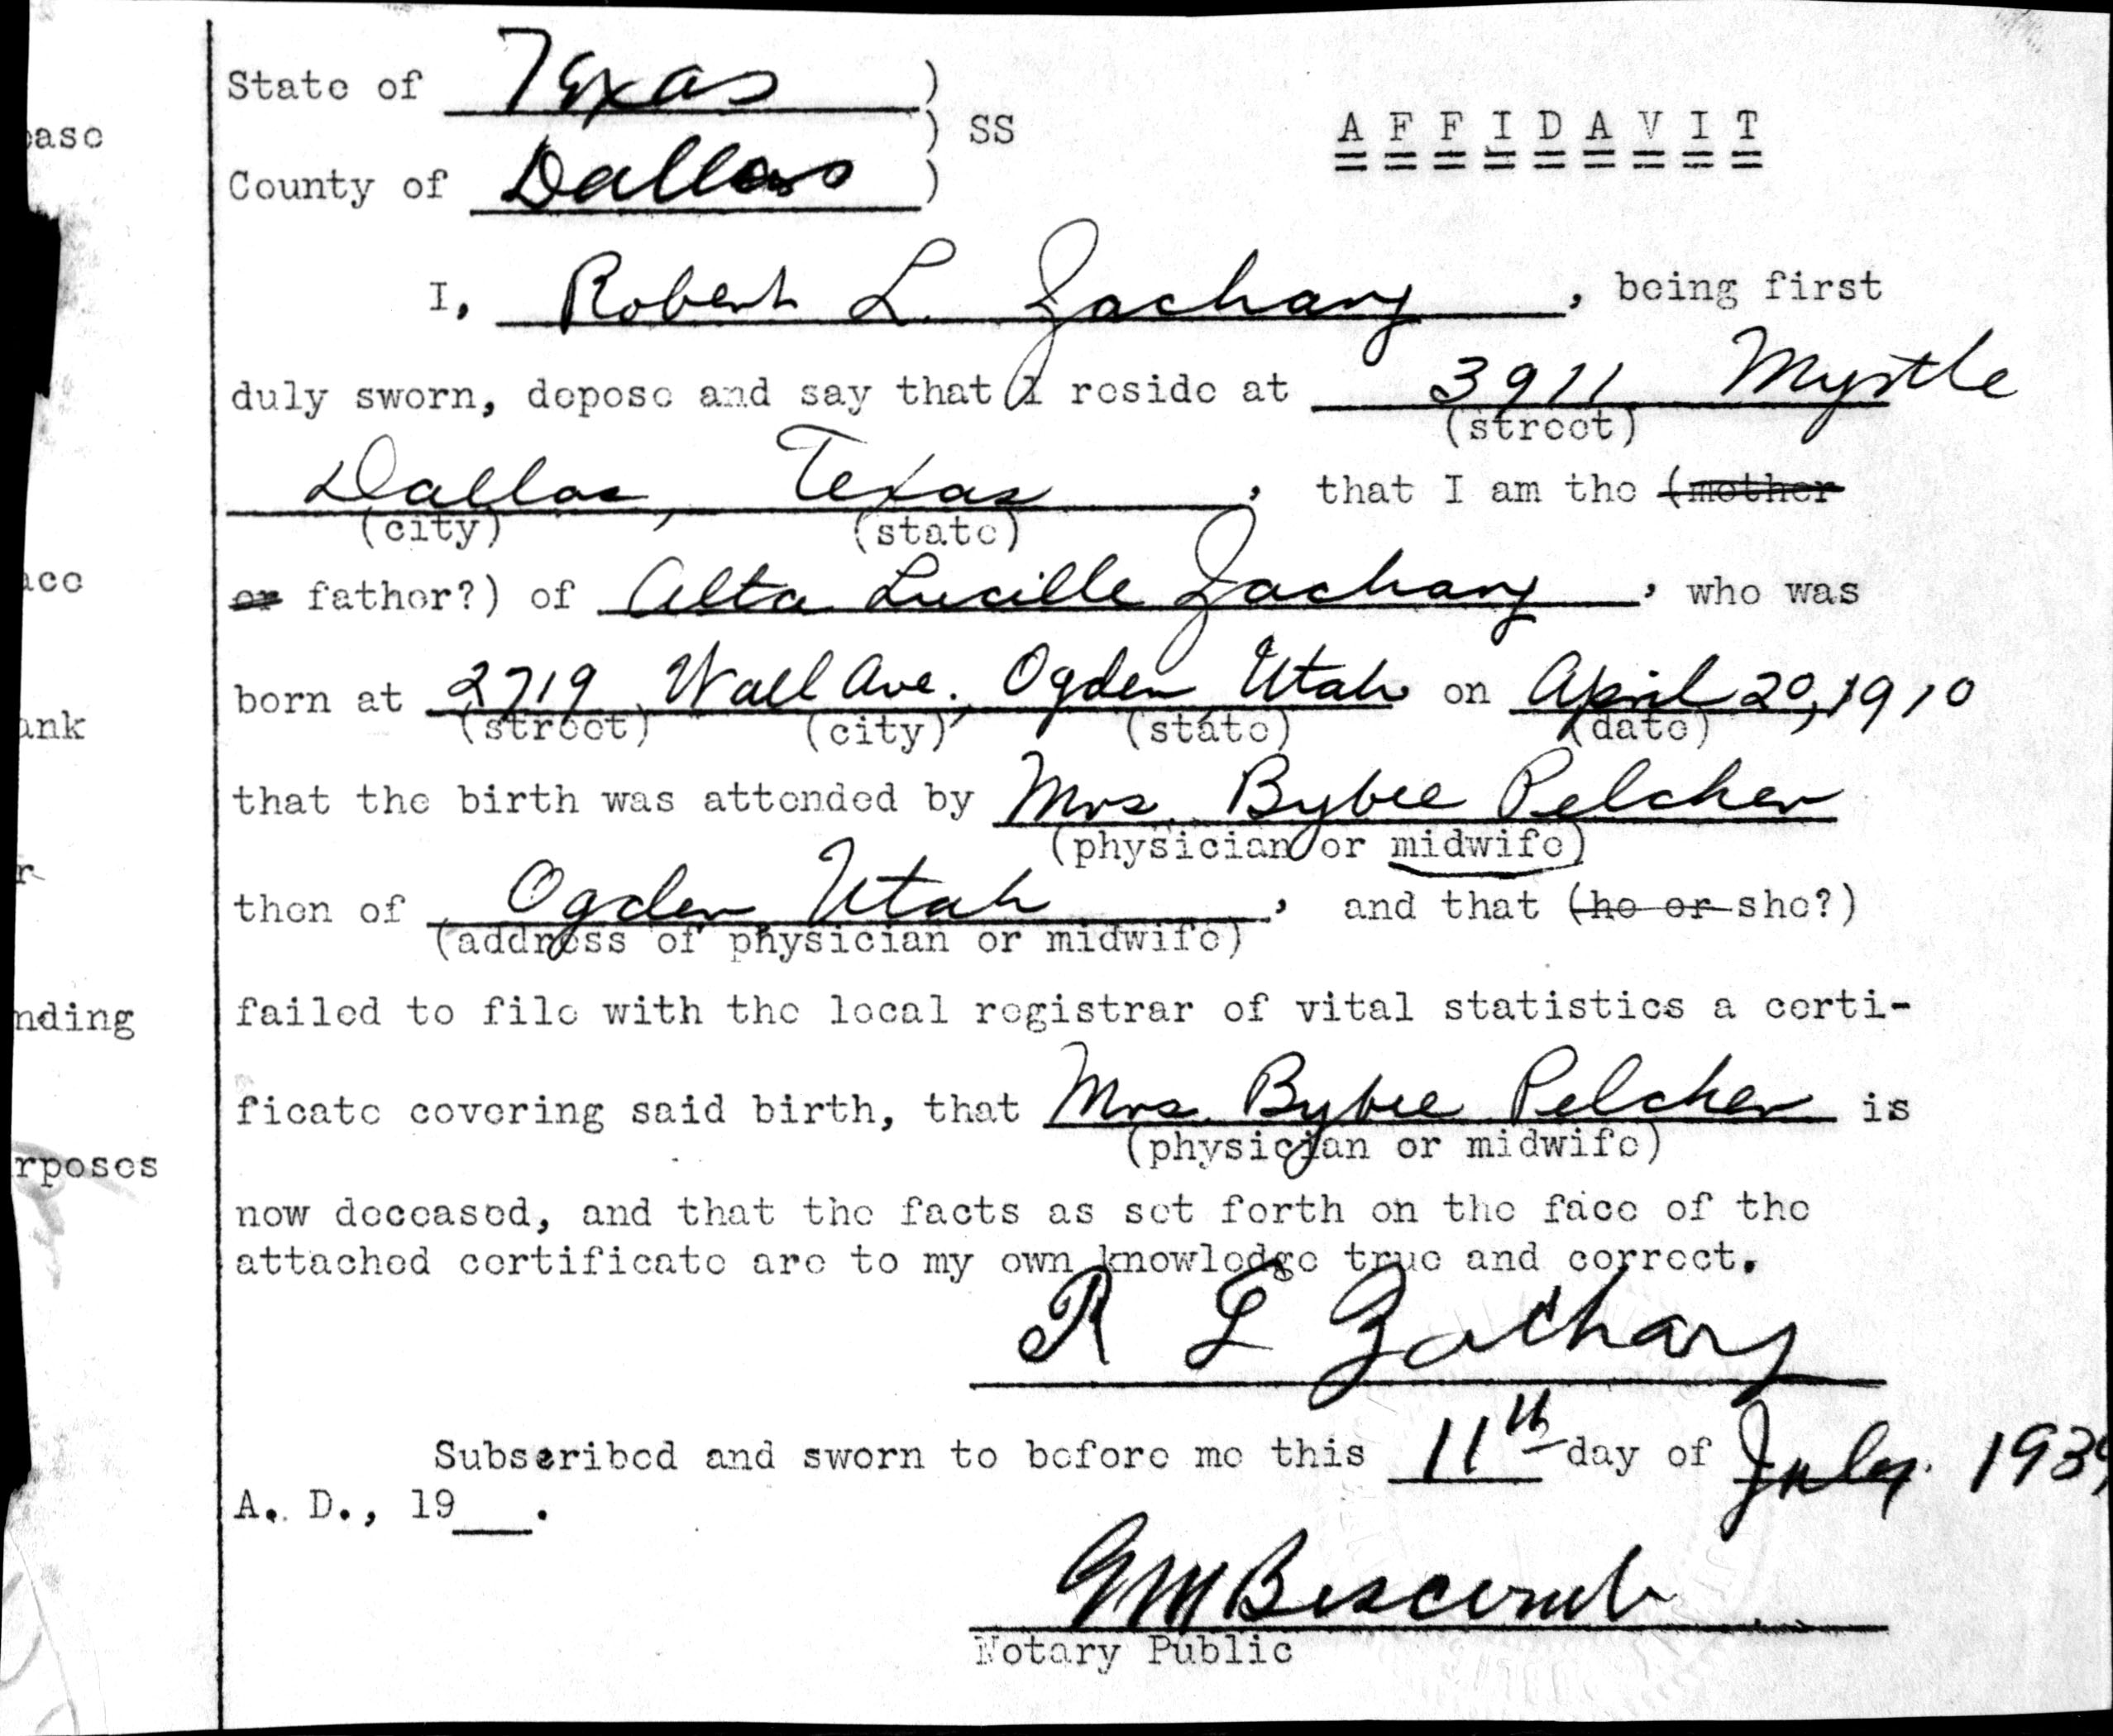 State of Texas )
) SS
A F F I D A V I T
County of Dallas )
I, Robert L. Zachary, being first
duly sworn, depose and say that I reside at 3911 Myrtle
(street)
Dallas, Texas, that I am the (mother
(city) (state)
or father?) of Alta Lucille Zachary, who was
born at 2719 Wall Ave., Ogden, Utah on April 20, 1910
(street) (city) (state) (date)
that the birth was attended by Mrs. Bybee Pelcher
(physician or midwife)
then of Ogden Utah, and that (he or she?)
(address of physician or midwife)
failed to file with the local registrar of vital statistics a certi-
ficate covering said birth, that Mrs. Bybee Pelcher is
(physician or midwife)
now deceased, and that the facts as set forth on the face of the
attached certificate are to my own knowledge true and correct.
R L Zachary
Subscribed and sworn to before me this 11th day of July. 1939
A. D., 19___.
Notary Public
ank
nding
rposes